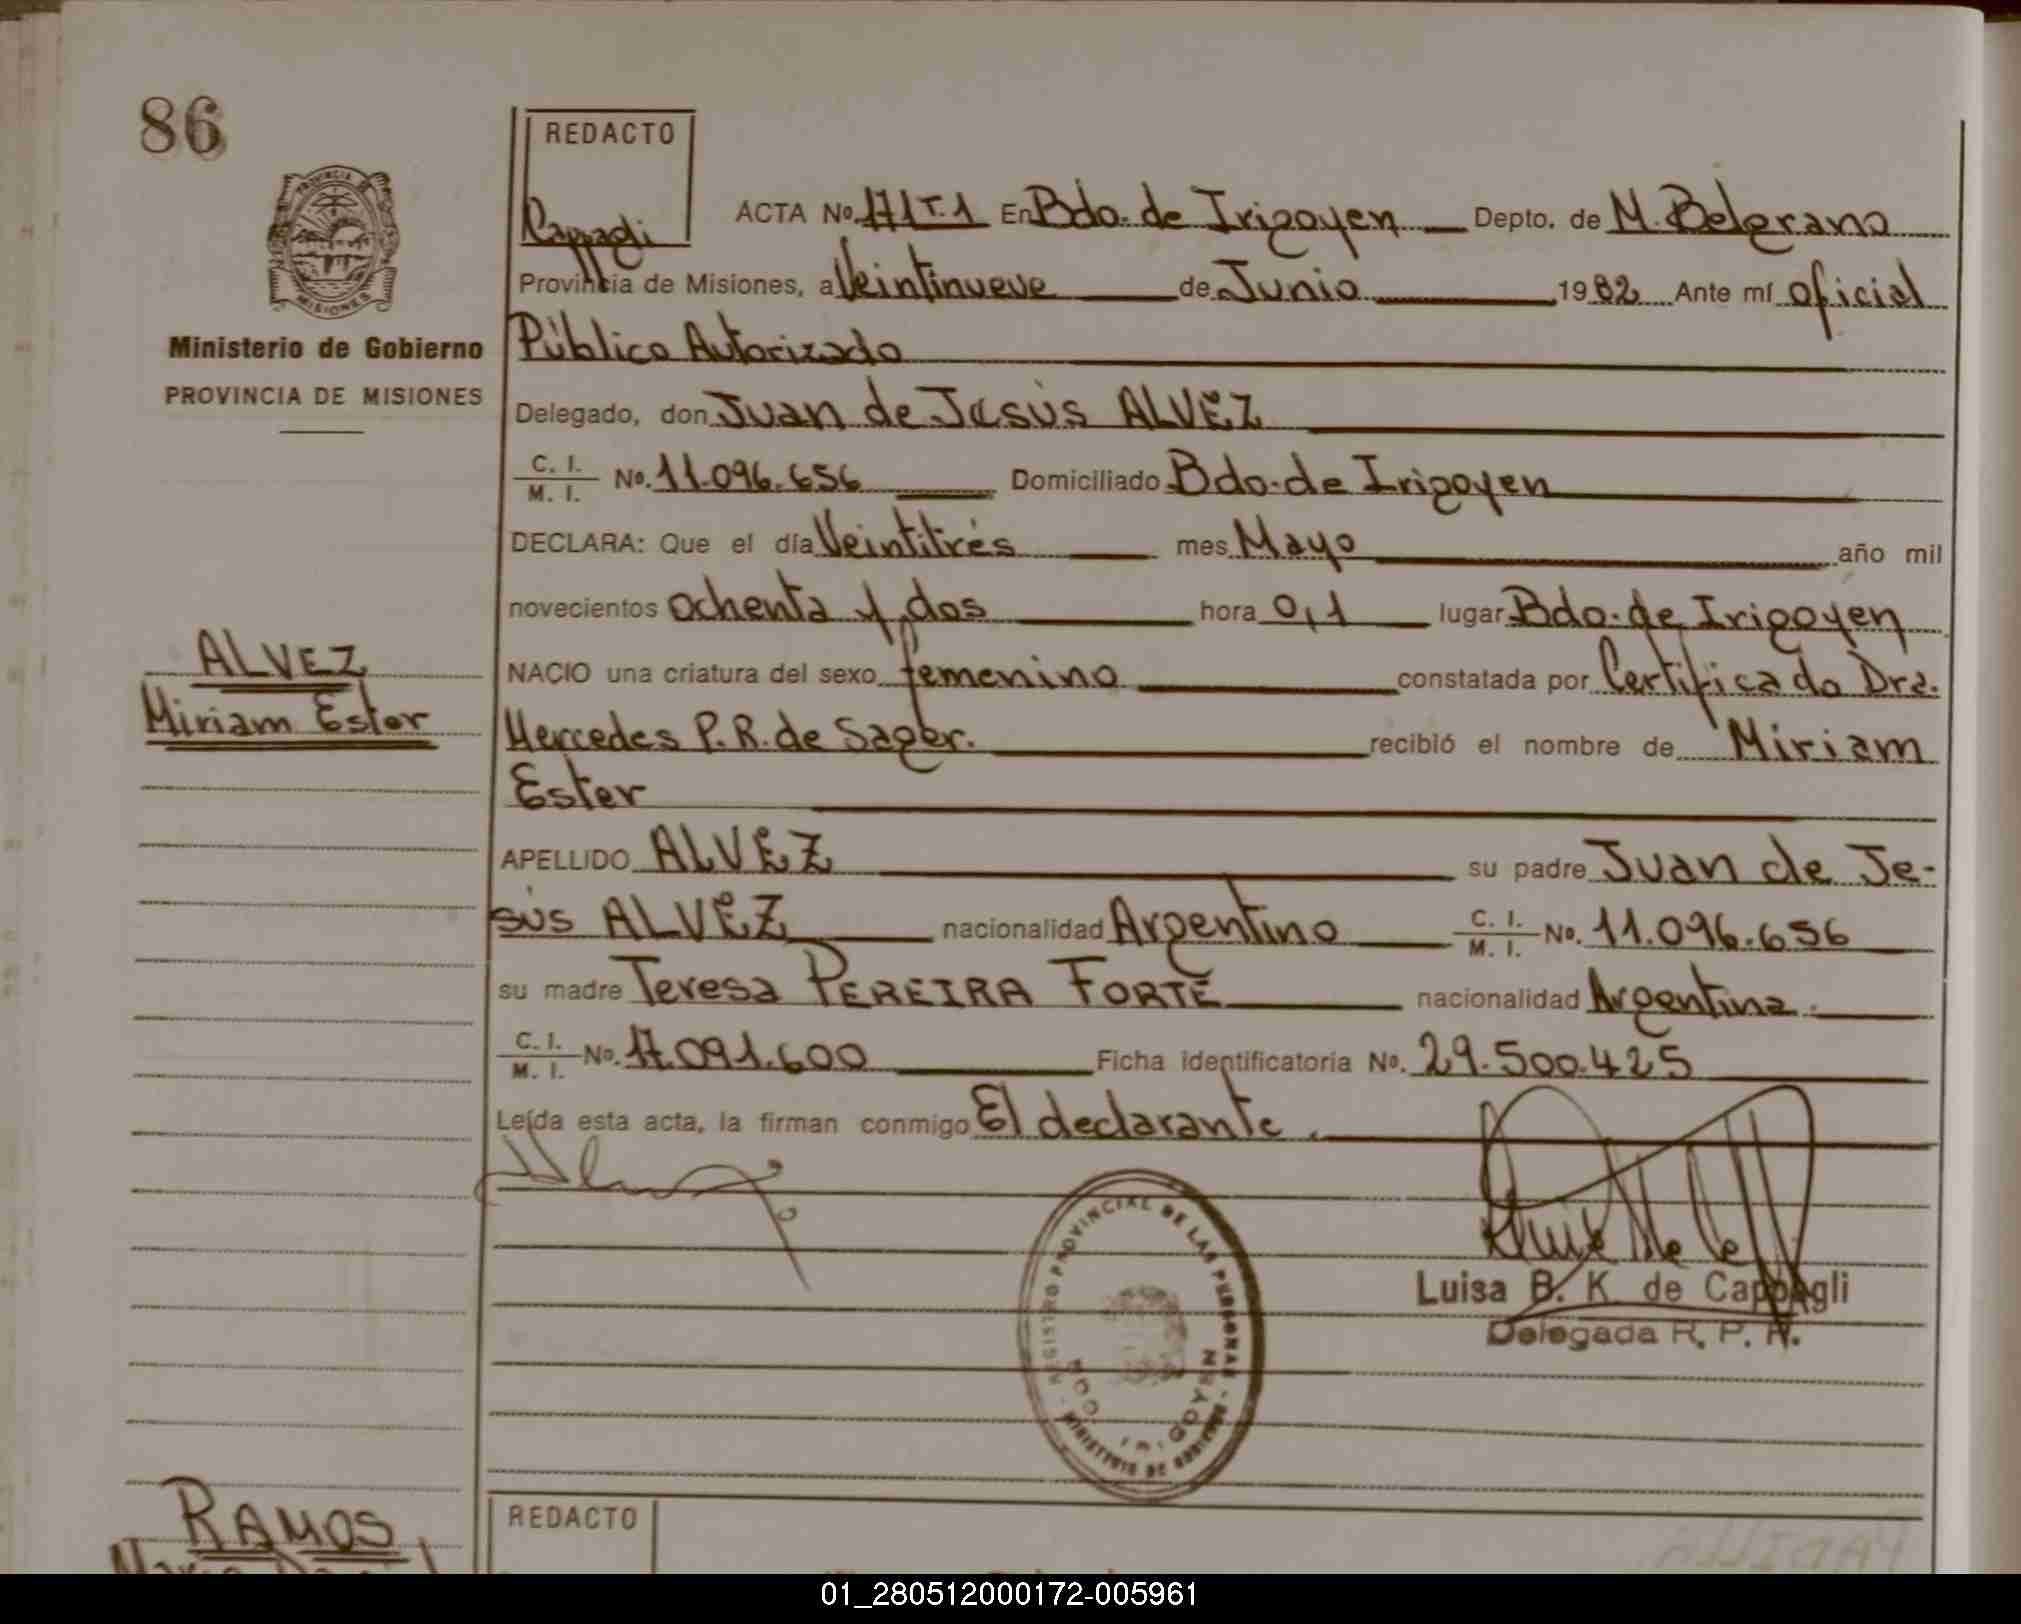 86
REDACTO
Cappagli
ACTA No. 171 T.1 En Bdo. de Irigoyen Depto. de M. Belgrano
Provincia de Misiones, a Veintinueve de Junio 1982 Ante mí oficial
Público Autorizado
Delegado, don Juan de Jesús ALVEZ
C. I. / M. I. No. 11.096.656 Domiciliado Bdo. de Irigoyen
DECLARA: Que el día Veintitrés mes Mayo año mil
novecientos ochenta y dos hora 0,1 lugar Bdo. de Irigoyen
NACIO una criatura del sexo femenino constatada por Certificado Dra.
Mercedes P. R. de Sager. recibió el nombre de Miriam
Ester
APELLIDO ALVEZ su padre Juan de Je-
sús ALVEZ nacionalidad Argentino C. I. / M. I. No. 11.096.656
su madre Teresa PEREIRA FORTE nacionalidad Argentina.
C. I. / M. I. No. 17.091.600 Ficha identificatoria No. 29.500.425
Leída esta acta, la firman conmigo El declarante.
PROVINCIA DE
MISIONES
Ministerio de Gobierno
PROVINCIA DE MISIONES
ALVEZ
Miriam Ester
REGISTRO PROVINCIAL DE LAS PERSONAS - MINISTERIO DE GOBIERNO
BDO. IRIGOYEN
Luisa B. K. de Cappagli
Delegada R. P. P.
RAMOS
REDACTO
01_280512000172-005961